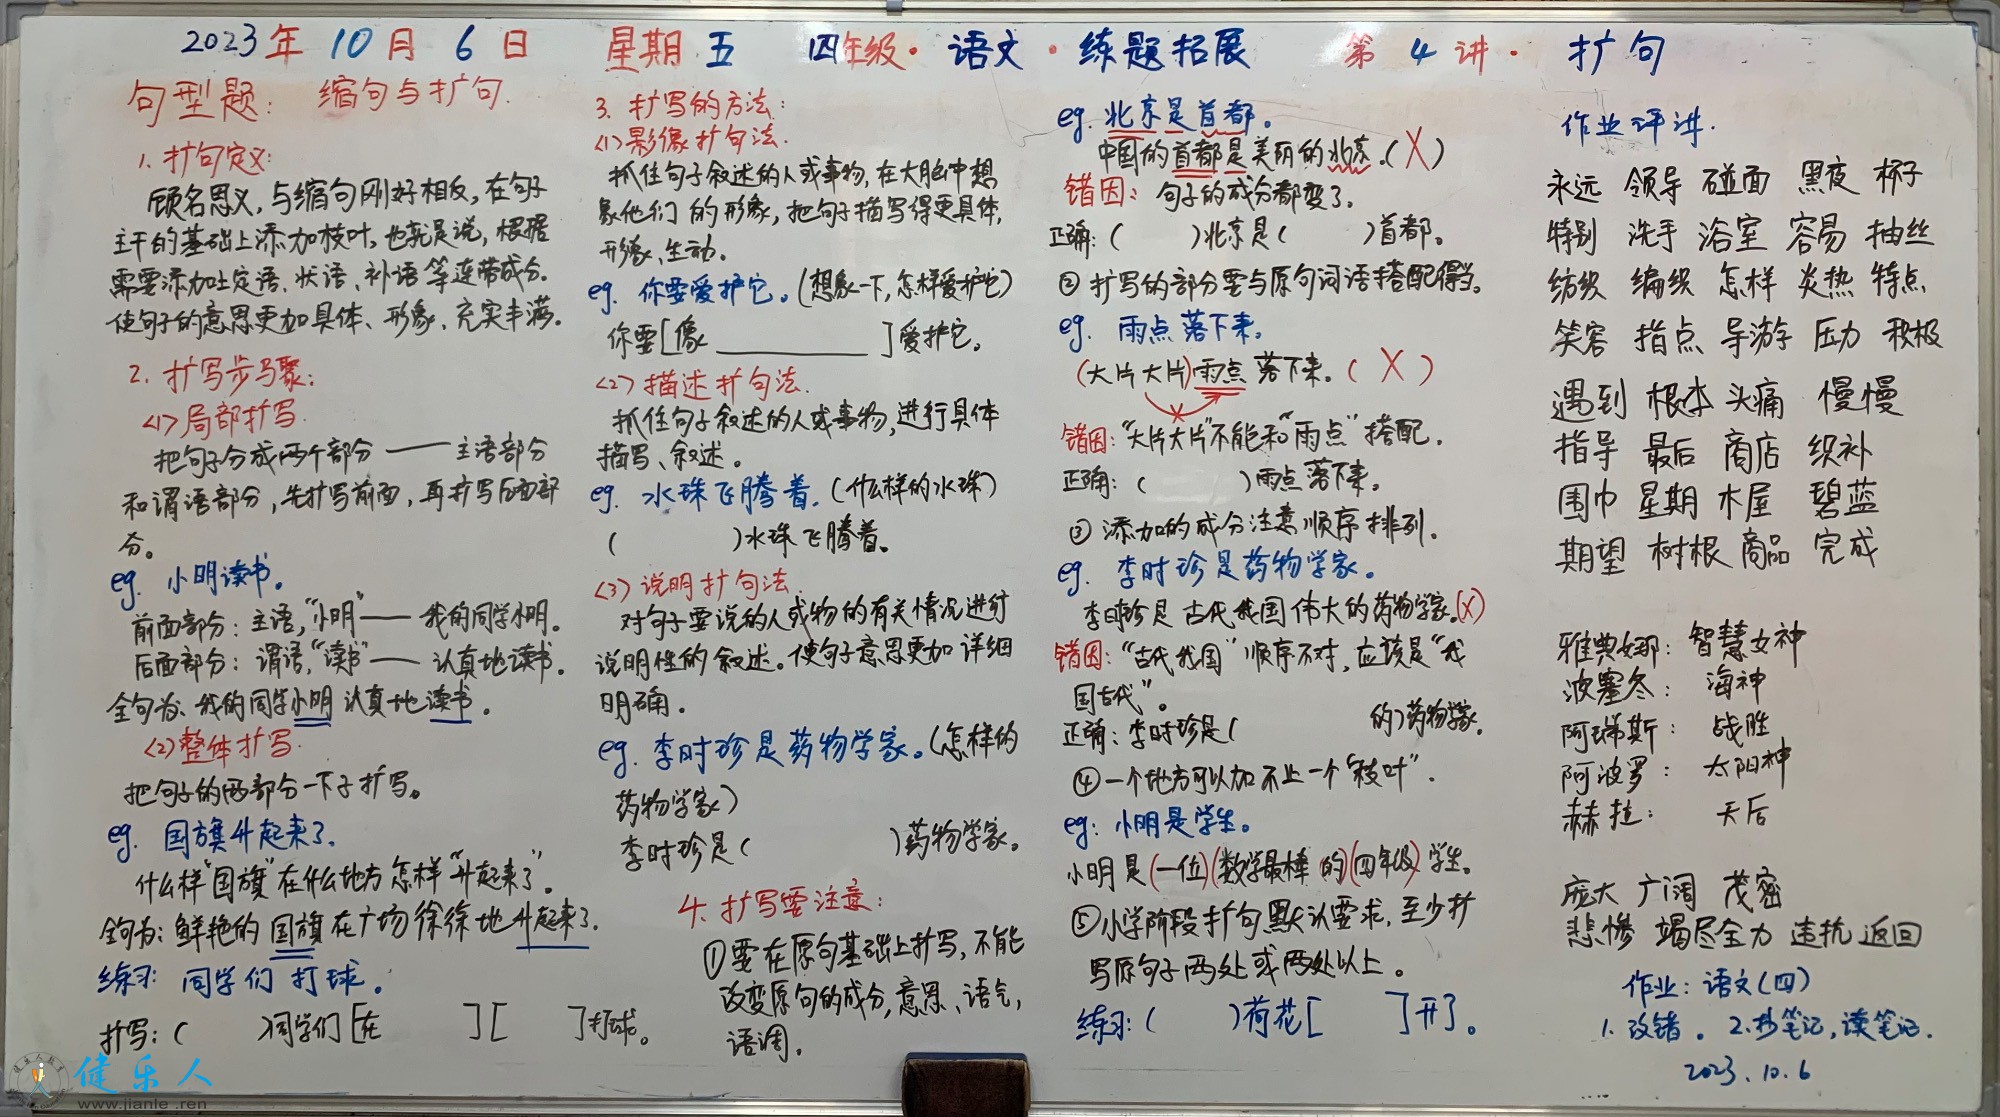 2023年10月6日 星期五 四年级·语文·练题拓展 第4讲·扩句
句型题: 缩句与扩句.
1. 扩句定义:
顾名思义,与缩句刚好相反,在句子
主干的基础上添加枝叶,也就是说,根据
需要添加上定语、状语、补语等连带成分.
使句子的意思更加具体、形象、充实丰满.
2. 扩写步骤:
(1)局部扩写.
把句子分成两个部分——主语部分
和谓语部分,先扩写前面,再扩写后面部
分。
eg. 小明读书。
前面部分:主语,"小明"——我的同学小明。
后面部分:谓语,"读书"——认真地读书。
全句为:我的同学小明认真地读书。
(2)整体扩写.
把句子的两部分一下子扩写。
eg. 国旗升起来了.
什么样"国旗"在什么地方怎样"升起来了".
全句为:鲜艳的国旗在广场徐徐地升起来了.
练习: 同学们打球。
扩写:( )同学们[在 ][ ]打球。
3. 扩写的方法:
(1)影像扩句法.
抓住句子叙述的人或事物,在大脑中想
象他们的形象,把句子描写得更具体,
形象、生动.
eg. 你要爱护它。(想象一下,怎样爱护它)
你要[像 ________ ]爱护它。
(2)描述扩句法.
抓住句子叙述的人或事物,进行具体
描写、叙述。
eg. 水珠飞腾着.(什么样的水珠)
( )水珠飞腾着。
(3)说明扩句法.
对句子要说的人或物的有关情况进行
说明性的叙述。使句子意思更加详细
明确.
eg. 李时珍是药物学家。(怎样的
药物学家)
李时珍是( )药物学家。
4. 扩写要注意:
①要在原句基础上扩写,不能
改变原句的成分,意思、语气,
语调.
eg. 北京是首都。
中国的首都是美丽的北京.(X)
错因: 句子的成分都变了.
正确:( )北京是( )首都。
②扩写的部分要与原句词语搭配得当。
eg. 雨点落下来.
(大片大片)雨点落下来.(X)
错因:"大片大片"不能和"雨点"搭配.
正确:( )雨点落下来。
③添加的成分注意顺序排列.
eg. 李时珍是药物学家.
李时珍是古代我国伟大的药物学家.(X)
错因:"古代我国"顺序不对,应该是"我
国古代".
正确:李时珍是( 的)药物学家.
④一个地方可以加不止一个"枝叶".
eg: 小明是学生。
小明是(一位)(数学最棒的)(四年级)学生。
⑤小学阶段扩句默认要求,至少扩
写原句子两处或两处以上。
练习:( )荷花[ ]开了。
作业评讲.
永远 领导 碰面 黑夜 杯子
特别 洗手 浴室 容易 抽丝
纺织 编织 怎样 炎热 特点
笑容 指点 导游 压力 积极
遇到 根本 头痛 慢慢
指导 最后 商店 织补
围巾 星期 木屋 碧蓝
期望 树根 商品 完成
雅典娜: 智慧女神
波塞冬: 海神
阿瑞斯: 战胜
阿波罗: 太阳神
赫拉: 天后
庞大 广阔 茂密
悲惨 竭尽全力 违抗 返回
作业: 语文(四)
1. 改错。 2. 抄笔记,读笔记.
2023.10.6
健乐人
www.jianle.ren